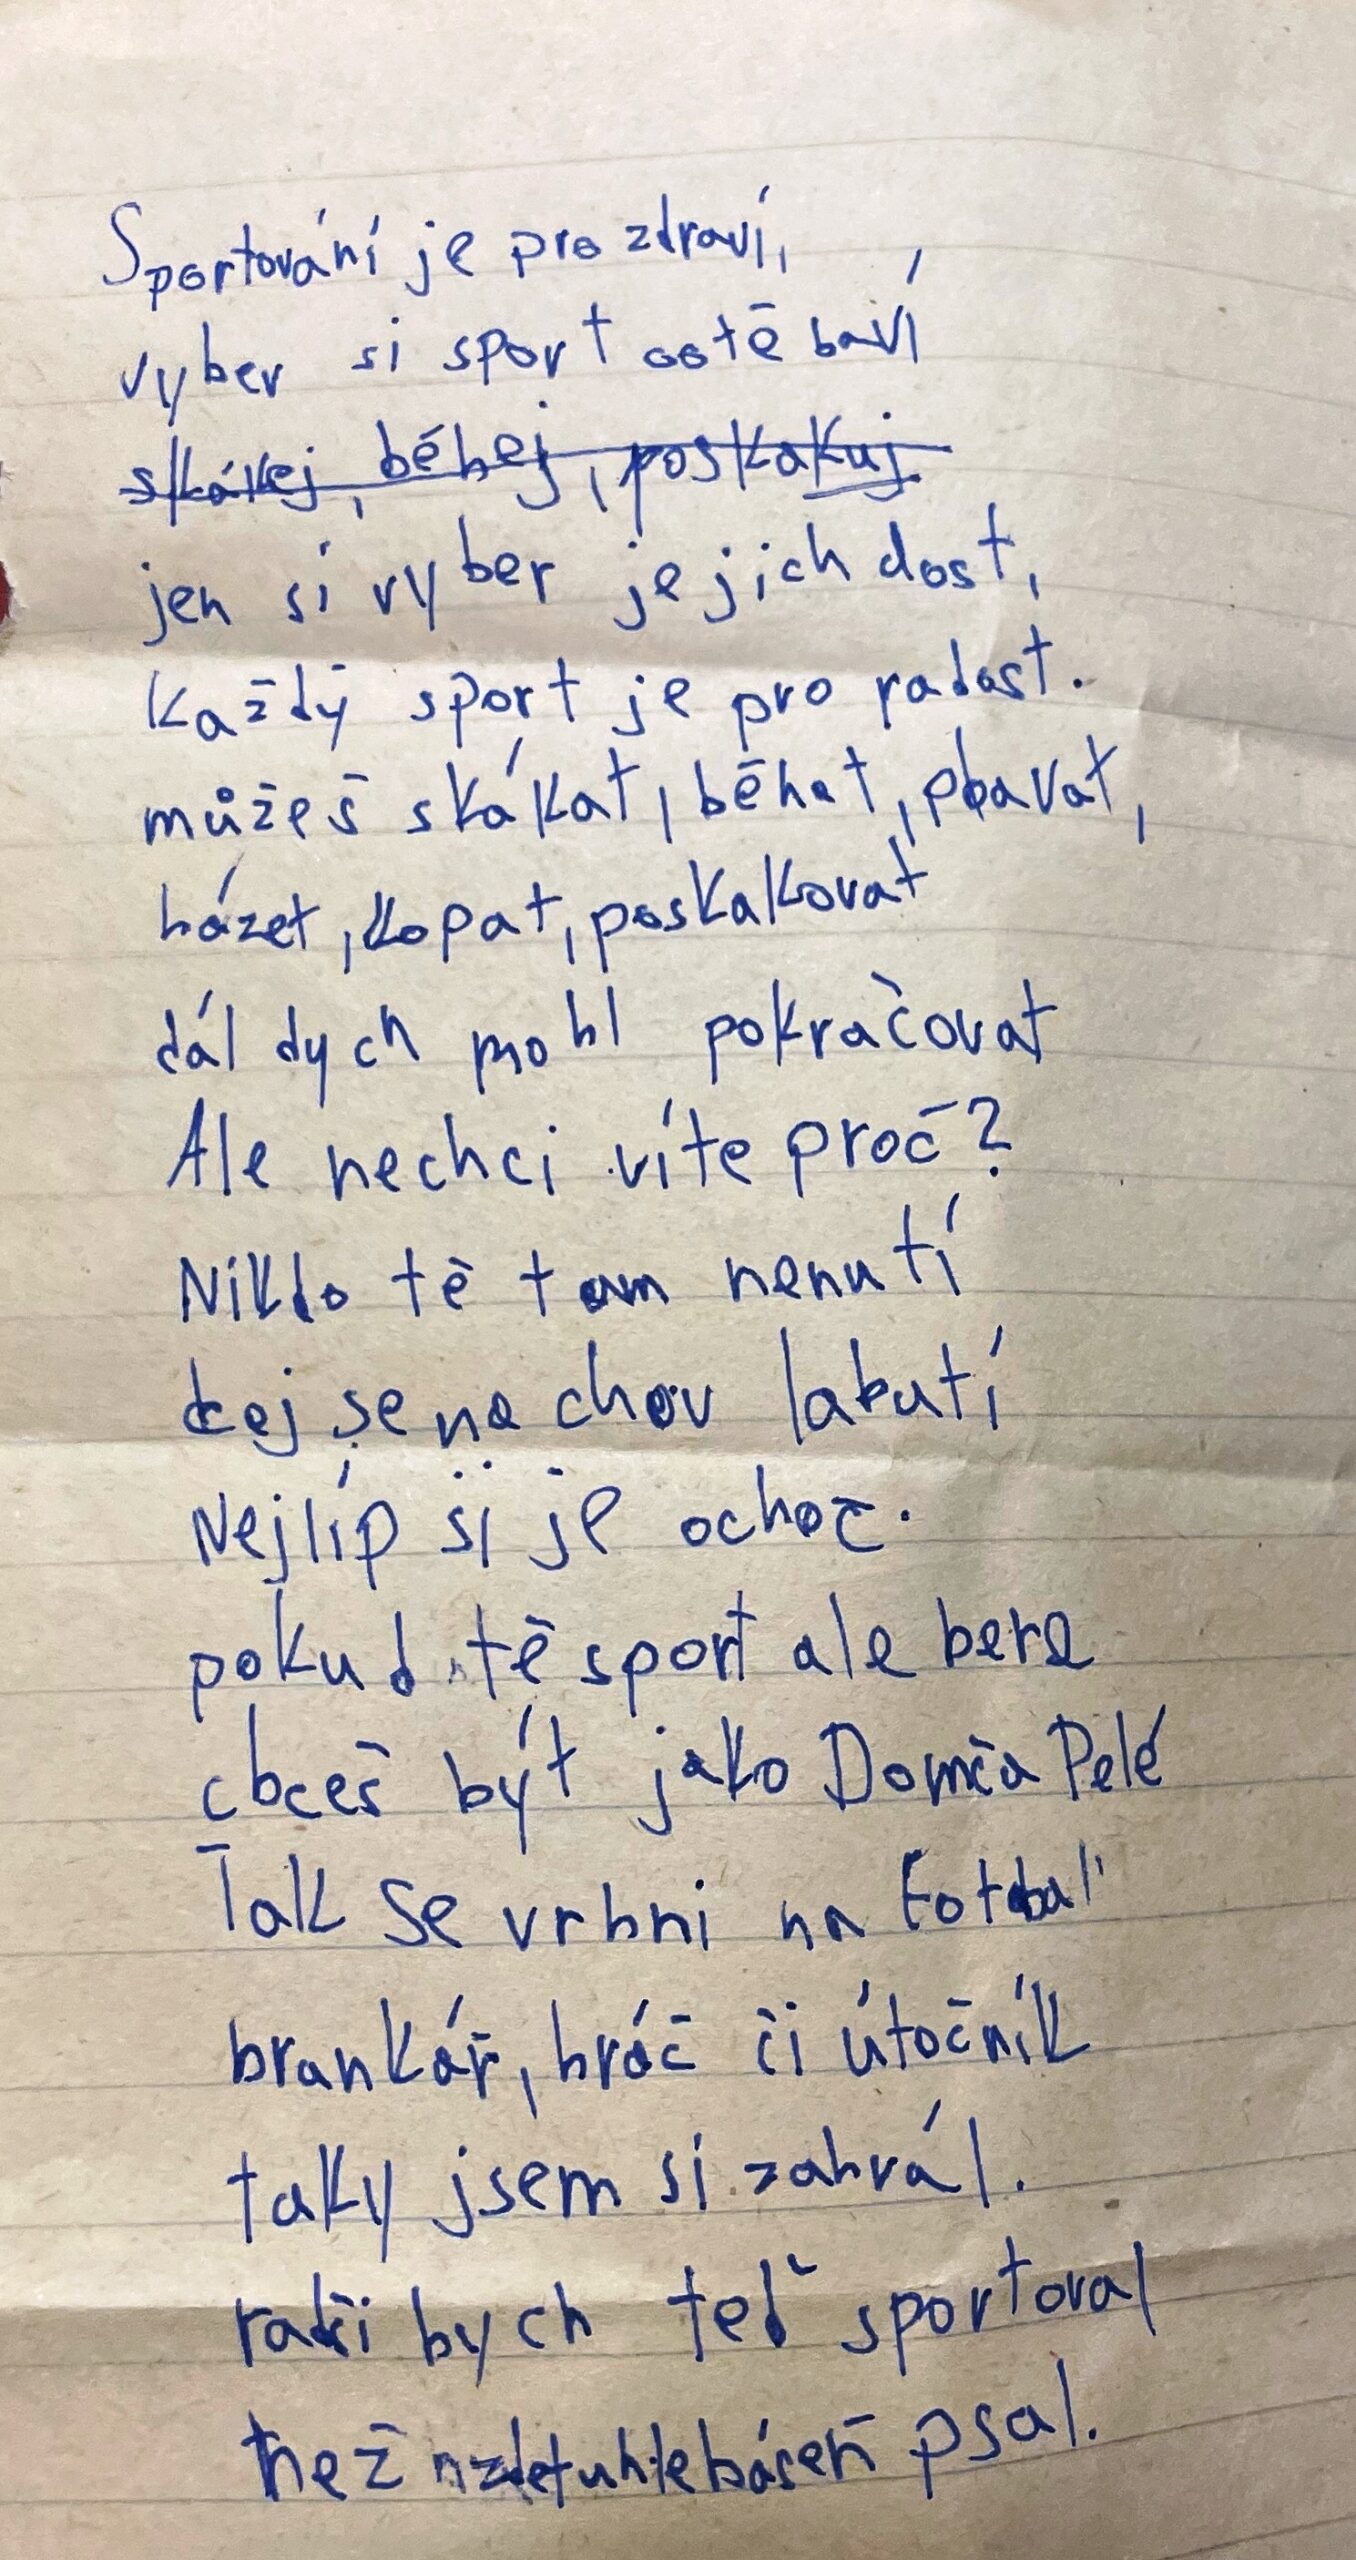 Sportování je pro zdraví,
vyber si sport co tě baví
skákej, běhej, poskakuj.
jen si vyber je jich dost,
Každý sport je pro radost.
můžeš skákat, běhat, plavat,
házet, kopat, poskakovat
dál bych mohl pokračovat
Ale nechci víte proč?
Nikdo tě tam nenutí
dej se na chov labutí
Nejlíp si je ochoč.
pokud tě sport ale bere
chceš být jako Domča Pelé
Tak se vrhni na Fotbal
brankář, hráč či útočník
taky jsem si zahrál.
radši bych teď sportoval
než tuhle báseň psal.